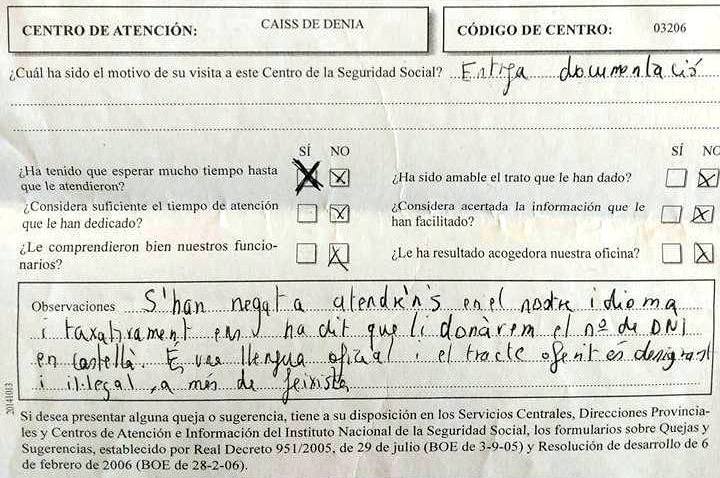 CENTRO DE ATENCIÓN: CAISS DE DENIA CÓDIGO DE CENTRO: 03206
¿Cuál ha sido el motivo de su visita a este Centro de la Seguridad Social? Entrga documentació
SÍ NO SÍ NO
¿Ha tenido que esperar mucho tiempo hasta
que le atendieron?
¿Ha sido amable el trato que le han dado?
¿Considera suficiente el tiempo de atención
que le han dedicado?
¿Considera acertada la información que le
han facilitado?
¿Le comprendieron bien nuestros funcio-
narios?
¿Le ha resultado acogedora nuestra oficina?
Observaciones S'han negat a atendre'ns en el nostre idioma
i taxativament ens ha dit que li donàrem el nº de DNI
en castellà. És una llengua oficial i el tracte oferit és denigrant
i il·legal, a més de feixista
20141013
Si desea presentar alguna queja o sugerencia, tiene a su disposición en los Servicios Centrales, Direcciones Provincia-
les y Centros de Atención e Información del Instituto Nacional de la Seguridad Social, los formularios sobre Quejas y
Sugerencias, establecido por Real Decreto 951/2005, de 29 de julio (BOE de 3-9-05) y Resolución de desarrollo de 6
de febrero de 2006 (BOE de 28-2-06).